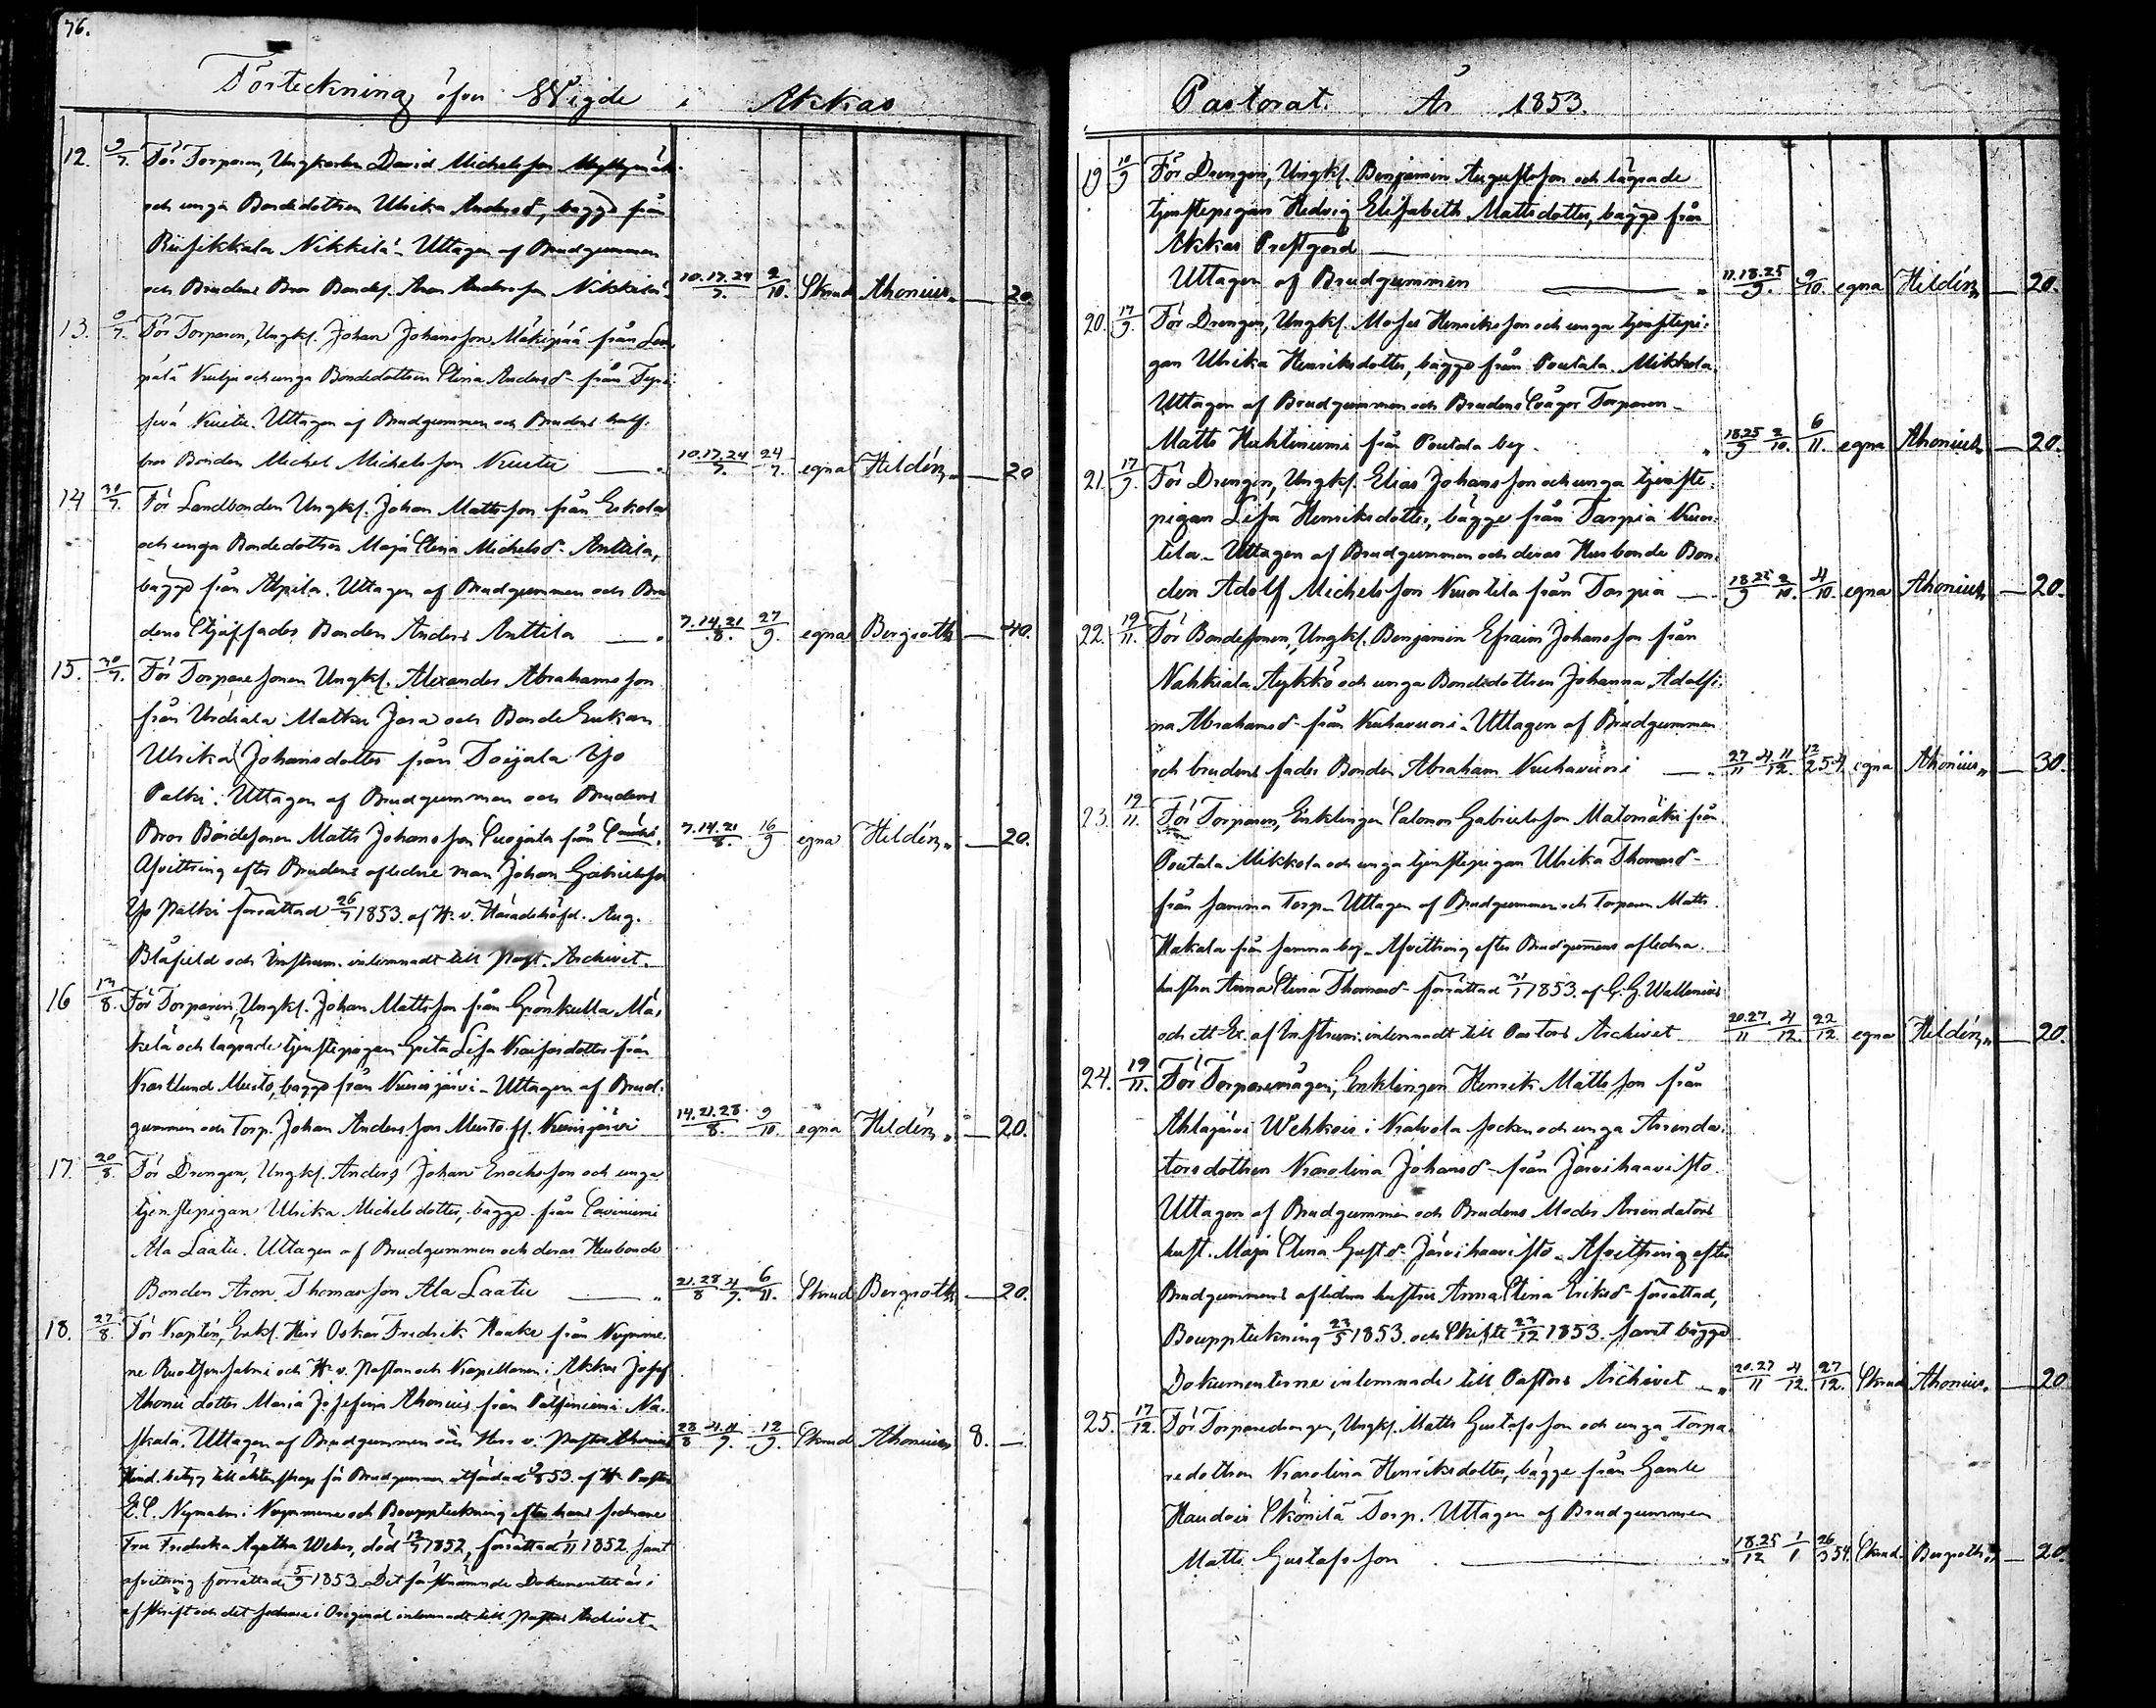 76.
Förteckning öfver Wigde i Akkas
12. 9/7. För Torparen, Ungkarlen David Michelsson
och unga Bondedottren Ulrika Andersd., bägge från
Riisikkala Nikkilä. Uttagen af Brudgummen
och Brudens Bror Bondes. Aron Andersson Nikkilä. 10.17.24/7. 2/10. Skrud Ahonius „ — 20.
13. 9/7. För Torparen, Ungk. Johan Johansson Mäkipää från Lem
päälä Kulju och unga Bondedottren Stina Andersd. från
Kurtu. Uttagen af Brudgummen och Brudens half-
bror Bonden Michel Michelsson Kurtu — „ 10.17.24/7. 24/7. egna Hildén „ — 20
14 30/7. För Landbonden Ungk. Johan Mattsson från Eskola
och unga Bondedottren Maja Stina Michelsd. Anttila,
bägge från Alpila. Uttagen af Brudgummen och Bru
dens Styffader Bonden Anders Anttila — „ 7.14.21/8. 27/9. egna Bergroth „ — 40.
15. 30/7. För Torparesonen Ungk. Alexander Abrahamsson
från Urdiala Matku Jara och Bonde Enkan
Ulrika Johansdotter från Toijala Yjo
Palki. Uttagen af Brudgummen och Brudens
Bror Bondesonen Matts Johansson från 7.14.21/8. 16/9 egna Hildén „ — 20.
Afvittring efter Brudens aflidne man Johan Gabrielsson
Yjo Palki förrättad 26/7 1853. af H. v. Häradshöfd. Aug.
Blåfield och Instrum. inlemnadt till Past. Archivet.
16 13/8. För Torparen, Ungk. Johan Mattsson från Grönkulla Mä-
kelä och lägrade tjenstepigan Greta Lisa Kaisasdotter från
Kastlund Musto, bägge från Kurisjärvi. Uttagen af Brud-
gummen och Torp. Johan Andersson Musto fr. Kurisjärvi 14.21.28/8. 9/10. egna Hildén „ — 20.
17. 20/8. För Drengen, Ungk. Anders Johan Enochsson och unga
tjenstepigan Ulrika Michelsdotter, bägge från Saviniemi
Ala Laatu. Uttagen af Brudgummen och deras Husbonde
Bonden Aron Thomasson Ala Laatu — „ 21.28/8 4/9. 6/11. Skrud Bergroth „ — 20.
18. 27/8. För Kapten, Enkl. Herr Oskar Fredrik Hauke från Nummi-
ne Ruotsensalmi och H. v. Pastor och Kapellanen i Akkas Josef
Ahonii dotter Maria Josefina Ahonius från Pätsiniemi Na-
skala. Uttagen af Brudgummen och Herr v. Pastor Ahonius 28/8 4.11/9. 12/9. Skrud Ahonius 8. —
Hind. betyg till äktenskap för Brudgummen utfärdad 853. af H. Pastor
E. C. Nymalm i Nummene och Bouppteckning efter hans fordna
Fru Fredrika Agatha Weber, död 12/7 1852, förrättad 1/11 1852 samt
afvittring förrättad 5/9 1853. Det förstnämnde Dokumentet är i
afskrift och det sednare i Original inlemnadt till Pastors Archivet.
Pastorat. År 1853.
19 10/9 För Drengen, Ungk. Benjamin Augustsson och lägrade
tjenstepigan Hedvig Elisabeth Mattsdotter, bägge från
Akkas Prestgård
Uttagen af Brudgummen — „ 11.18.25/9. 9/10. egna Hildén „ — 20.
20. 17/9. För Drengen, Ungk. Moses Henriksson och unga tjenstepi-
gan Ulrika Henriksdotter, bägge från Poutala Mikkola.
Uttagen af Brudgummen och Brudens Svåger Torparen
Matts Huhtiniemi från Poutala by. „ 18.25/9 2/10. 6/11. egna Ahonius — 20.
21. 17/9. För Drengen, Ungk. Elias Johansson och unga tjenste-
pigan Lisa Henriksdotter, bägge från Tarpia Kuor-
tila. Uttagen af Brudgummen och deras Husbonde Bon-
den Adolf Michelsson Kuortila från Tarpia — 18.25/9 2/10. 4/10. egna Ahonius — 20.
22. 19/11. För Bondesonen, Ungk. Benjamin Efraim Johansson från
Nahkiala Äykkö och unga Bondedottren Johanna Adolfi-
na Abrahamsd. från Kuhavuori. Uttagen af Brudgummen
och brudens fader Bonden Abraham Kuhavuori — 27/11 4.11/12. 12/2 54. egna Ahonius „ — 30.
23. 19/11. För Torparen, Enklingen Salomon Gabrielsson Matomäki från
Poutala Mikkola och unga tjenstepigan Ulrika Thomasd.
från samma Torp. Uttagen af Brudgummen och Torparen Matts
Hakala från samma by. Afvittring efter Brudgummens aflidna
hustru Anna Stina Thomasd. förrättad 31/1 1853. af G. G. Wallenius
och ett Ex. af Instrum. inlemnadt till Pastors Archivet 20.27/11 4/12. 22/12. egna Hildén „ — 20.
24. 19/11. För Torparemågen, Enklingen Henrik Mattsson från
Ahlajärvi Wehkois i Kalvola socken och unga Arenda-
torsdottren Karolina Johansd. från Järvihaavisto.
Uttagen af Brudgummen och Brudens Moder Arendators
hust. Maja Stina Gustd. Järvihaavisto. Afvittring efter
Brudgummens aflidna hustru Anna Stina Eriksd. förrättad,
Bouppteckning 23/5 1853. och Skifte 23/12 1853. samt bägge
Dokumenterne inlemnade till Pastors Archivet — „ 20.27/11 4/12. 27/12. Skrud Ahonius „ — 20
25. 17/12. För Torparedrengen, Ungk. Matts Gustafsson och unga Torpa-
redottren Karolina Henriksdotter, bägge från Gamle
Haudois Skönilä Torp. Uttagen af Brudgummen
Matts Gustafsson — „ 18.25/12 1/1 26/3 54. Skrud. Bergroth „ — 20.